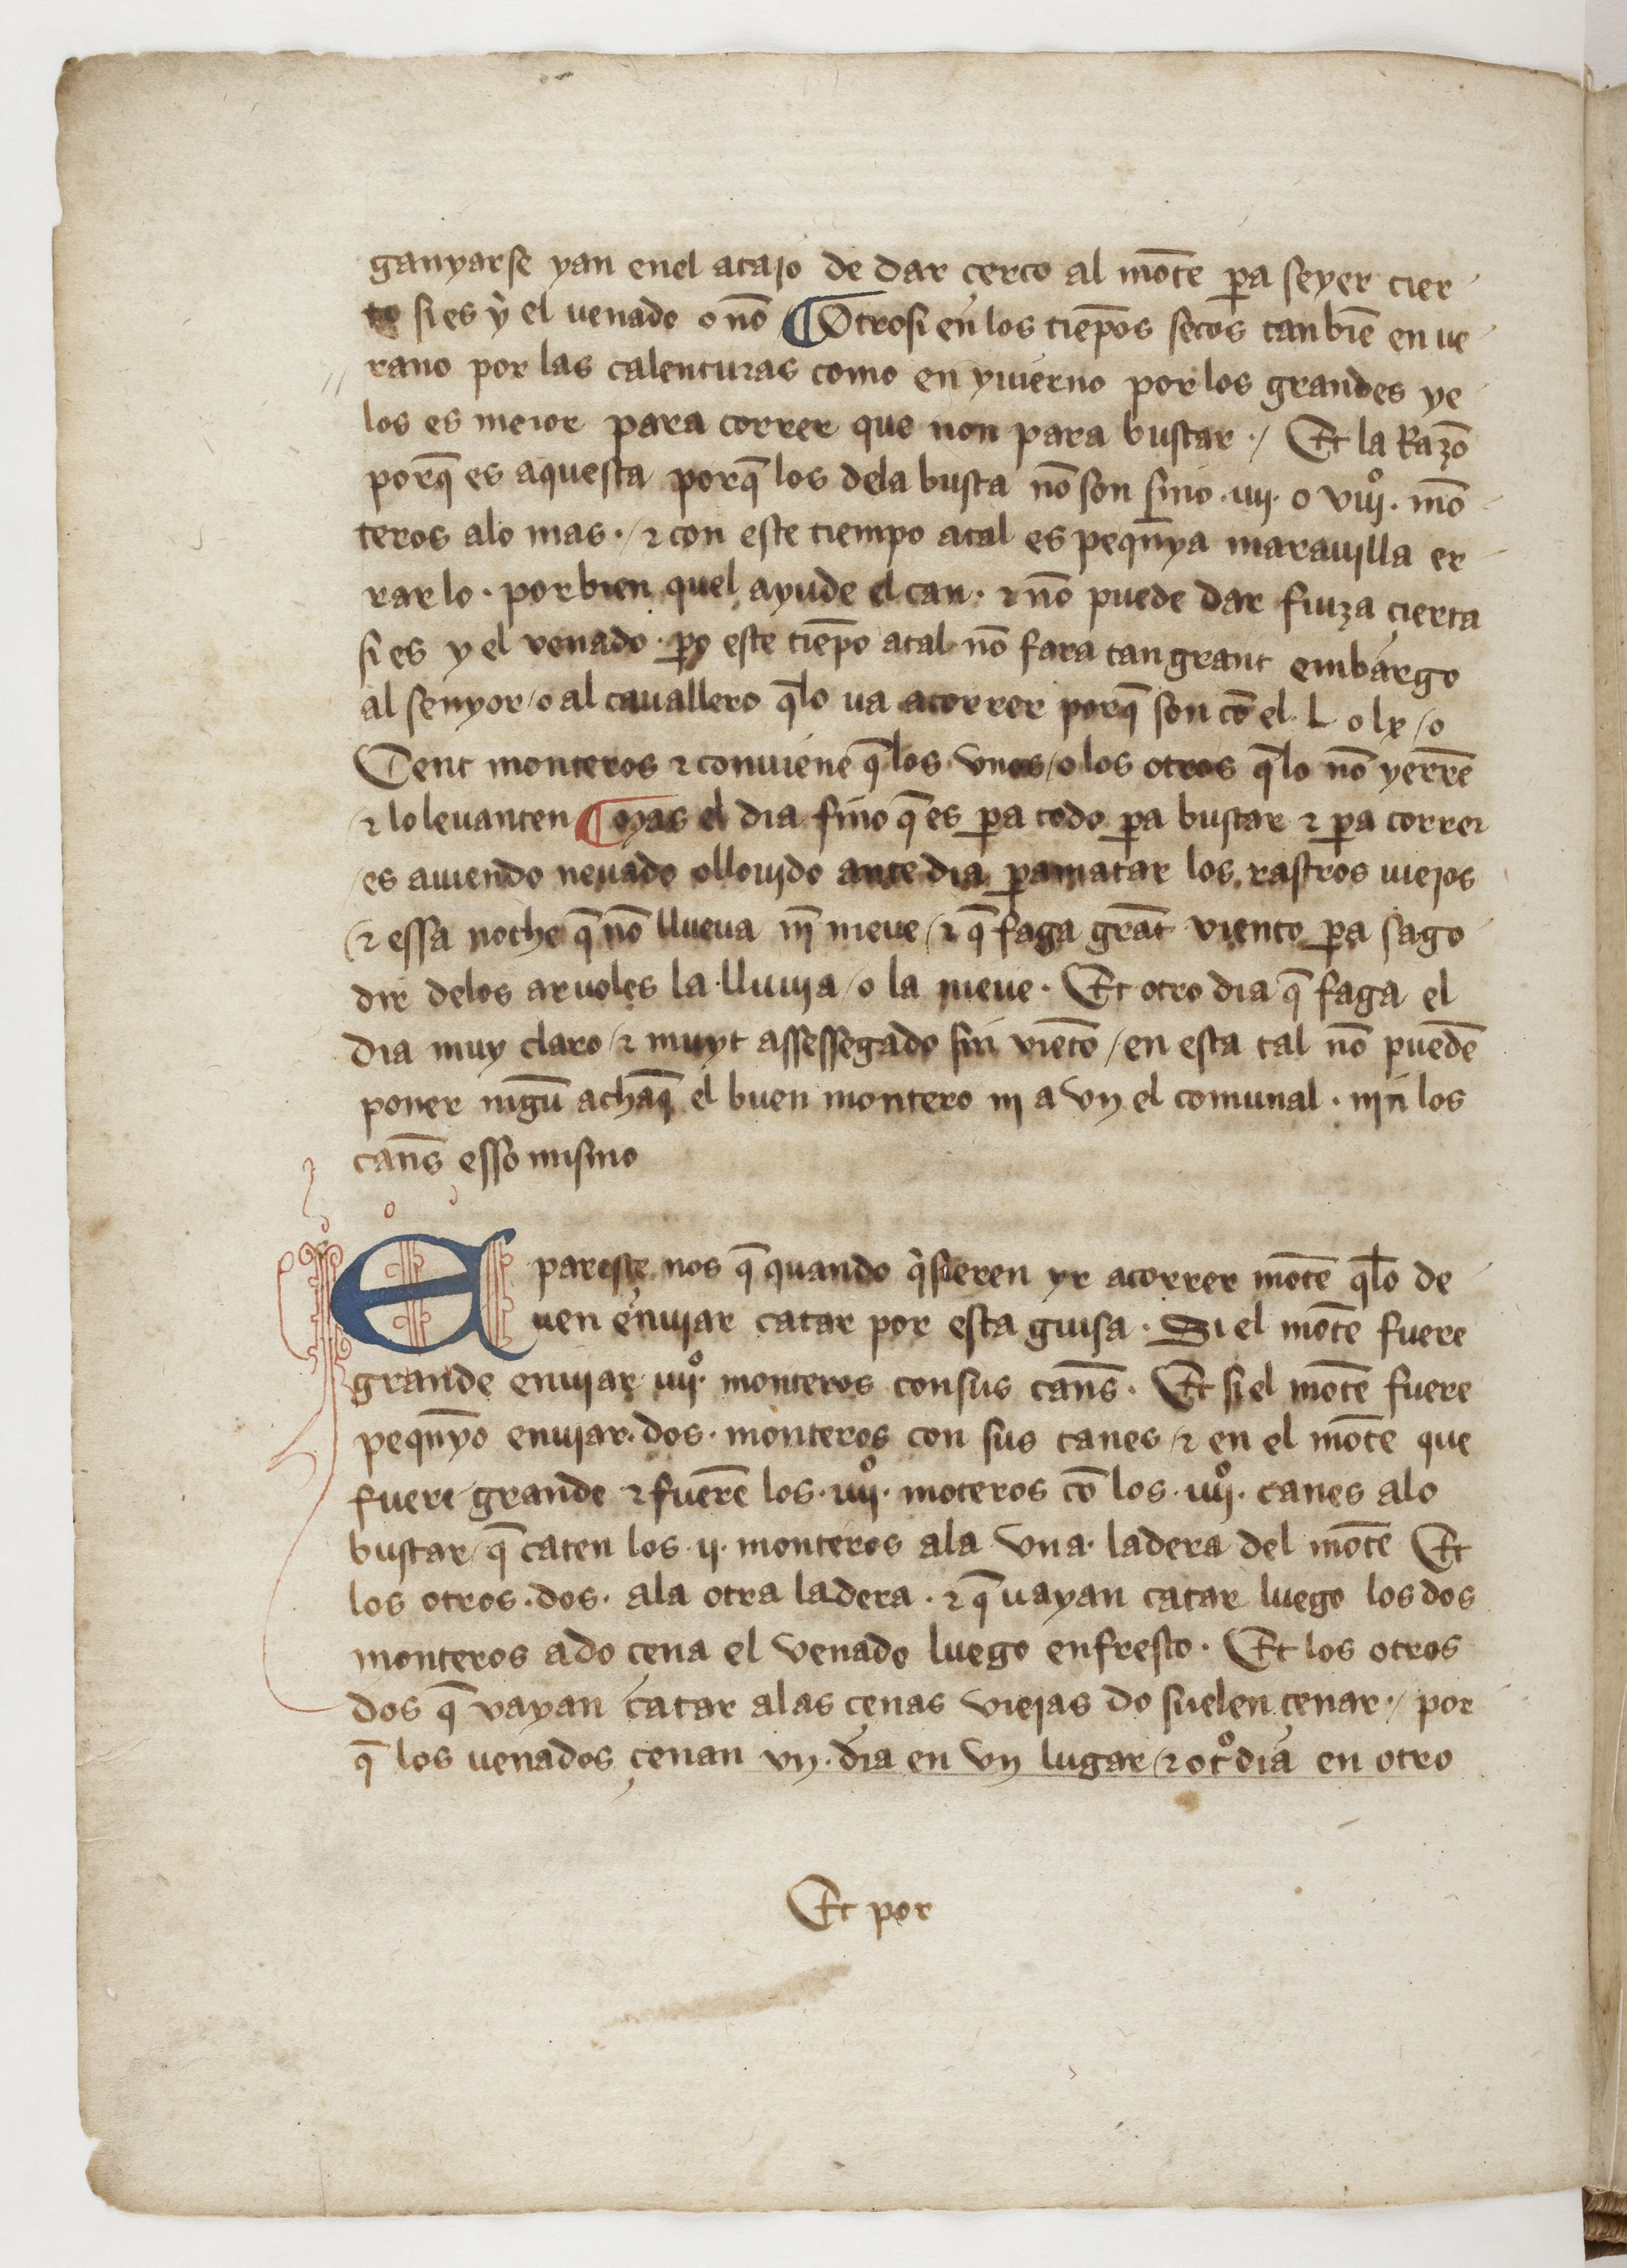 ganyarse yan enel atajo de dar çerco al mōte p̄a seyer cier
to si es ẏ el uenado o nō ¶ Otrosi en los tiēpos secos tan biē en ue
rano por las calenturas como en yuierno por los grandes ye
los es meior para correr que non para buscar ·/ Et la Razō
porq̄ es aquesta porq̄ los dela busca nō son sino · iiij · o viijº · mō
teros alo mas ·/ ⁊ con este tiempo atal es pequn̄ya marauilla er
rar lo · por bien quel ayude el can · ⁊ nō puede dar fiuza çierta
si es y el venado · po̱ este tiēpo atal nō fara tan grant embargo
al senyor / o al cauallero q̄lo ua acorrer porq̄ son cō el · L o lx / o
Cent monteros ⁊ conuiene q̄ los vnos / o los otros q̄ lo nō yerrē
⁊ lo leuanten ¶ Mas el dia fino q̄ es p̄a todo p̄a buscar ⁊ p̄a correr
/ es auiendo neuado o llouido ante dia p̄a matar los rastros uiejos
/ ⁊ essa noche q̄ nō llueua nj̄ nieue / ⁊ q̄ faga grāt viento p̄a sago
dir delos aruoles la lluuia / o la nieue · Et otro dia q̄ faga el
dia muy claro / ⁊ muyt assessegado sin viēto / en esta tal nō puedē
poner nīgū achaq̄ el buen montero nj a vn el comunal · njn los
can̄s esso mismo
E paresçe nos q̄ quando q̇sieren yr acorrer mōte q̄lo de
uen enuiar catar por esta guisa · Si el mōte fuere
grande enuiar iiijº · monteros con sus can̄s · Et si el mōte fuere
pequn̄yo enuiar · dos · monteros con sus canes / ⁊ en el mōte que
fuere grande ⁊ fuerē los · iiijº · moteros cō los · iiijº · canes alo
buscar / q̄ caten los · ij · monteros ala vna · ladera del mōte Et
los otros · dos · ala otra ladera · ⁊ q̄ uayan catar luego los dos
monteros ado çena el venado luego en fresco · Et los otros
dos q̄ vayan catar alas çenas viejas do suelen çenar ·/ por
q̄ los uenados çenan vn · dia en vn lugar / ⁊ otº dia en otro
Et por